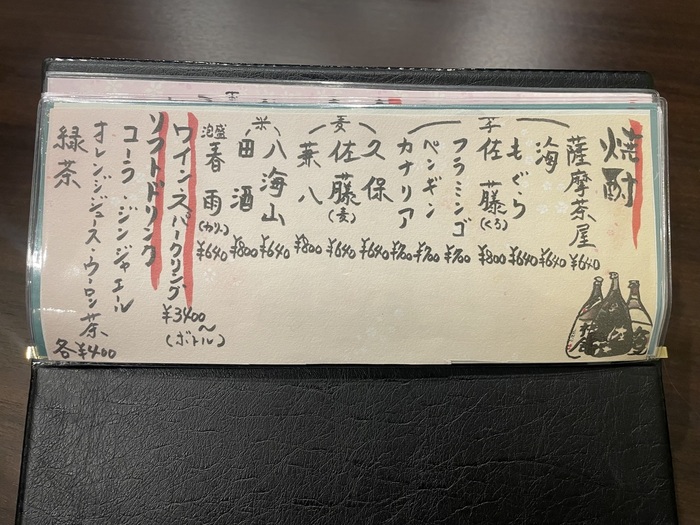 焼酎
薩摩茶屋 ¥640
海 ¥640
もぐら ¥640
芋
佐藤(くろ) ¥800
フラミンゴ ¥700
ペンギン ¥700
カナリア ¥700
久保 ¥640
麦
佐藤(麦) ¥640
兼八 ¥800
八海山 ¥640
米
田酒 ¥800
泡盛
春雨(カリー) ¥640
ワイン・スパークリング ¥3400〜(ボトル)
ソフトドリンク
コーラ・ジンジャエール
オレンジジュース・ウーロン茶
緑茶
各¥400